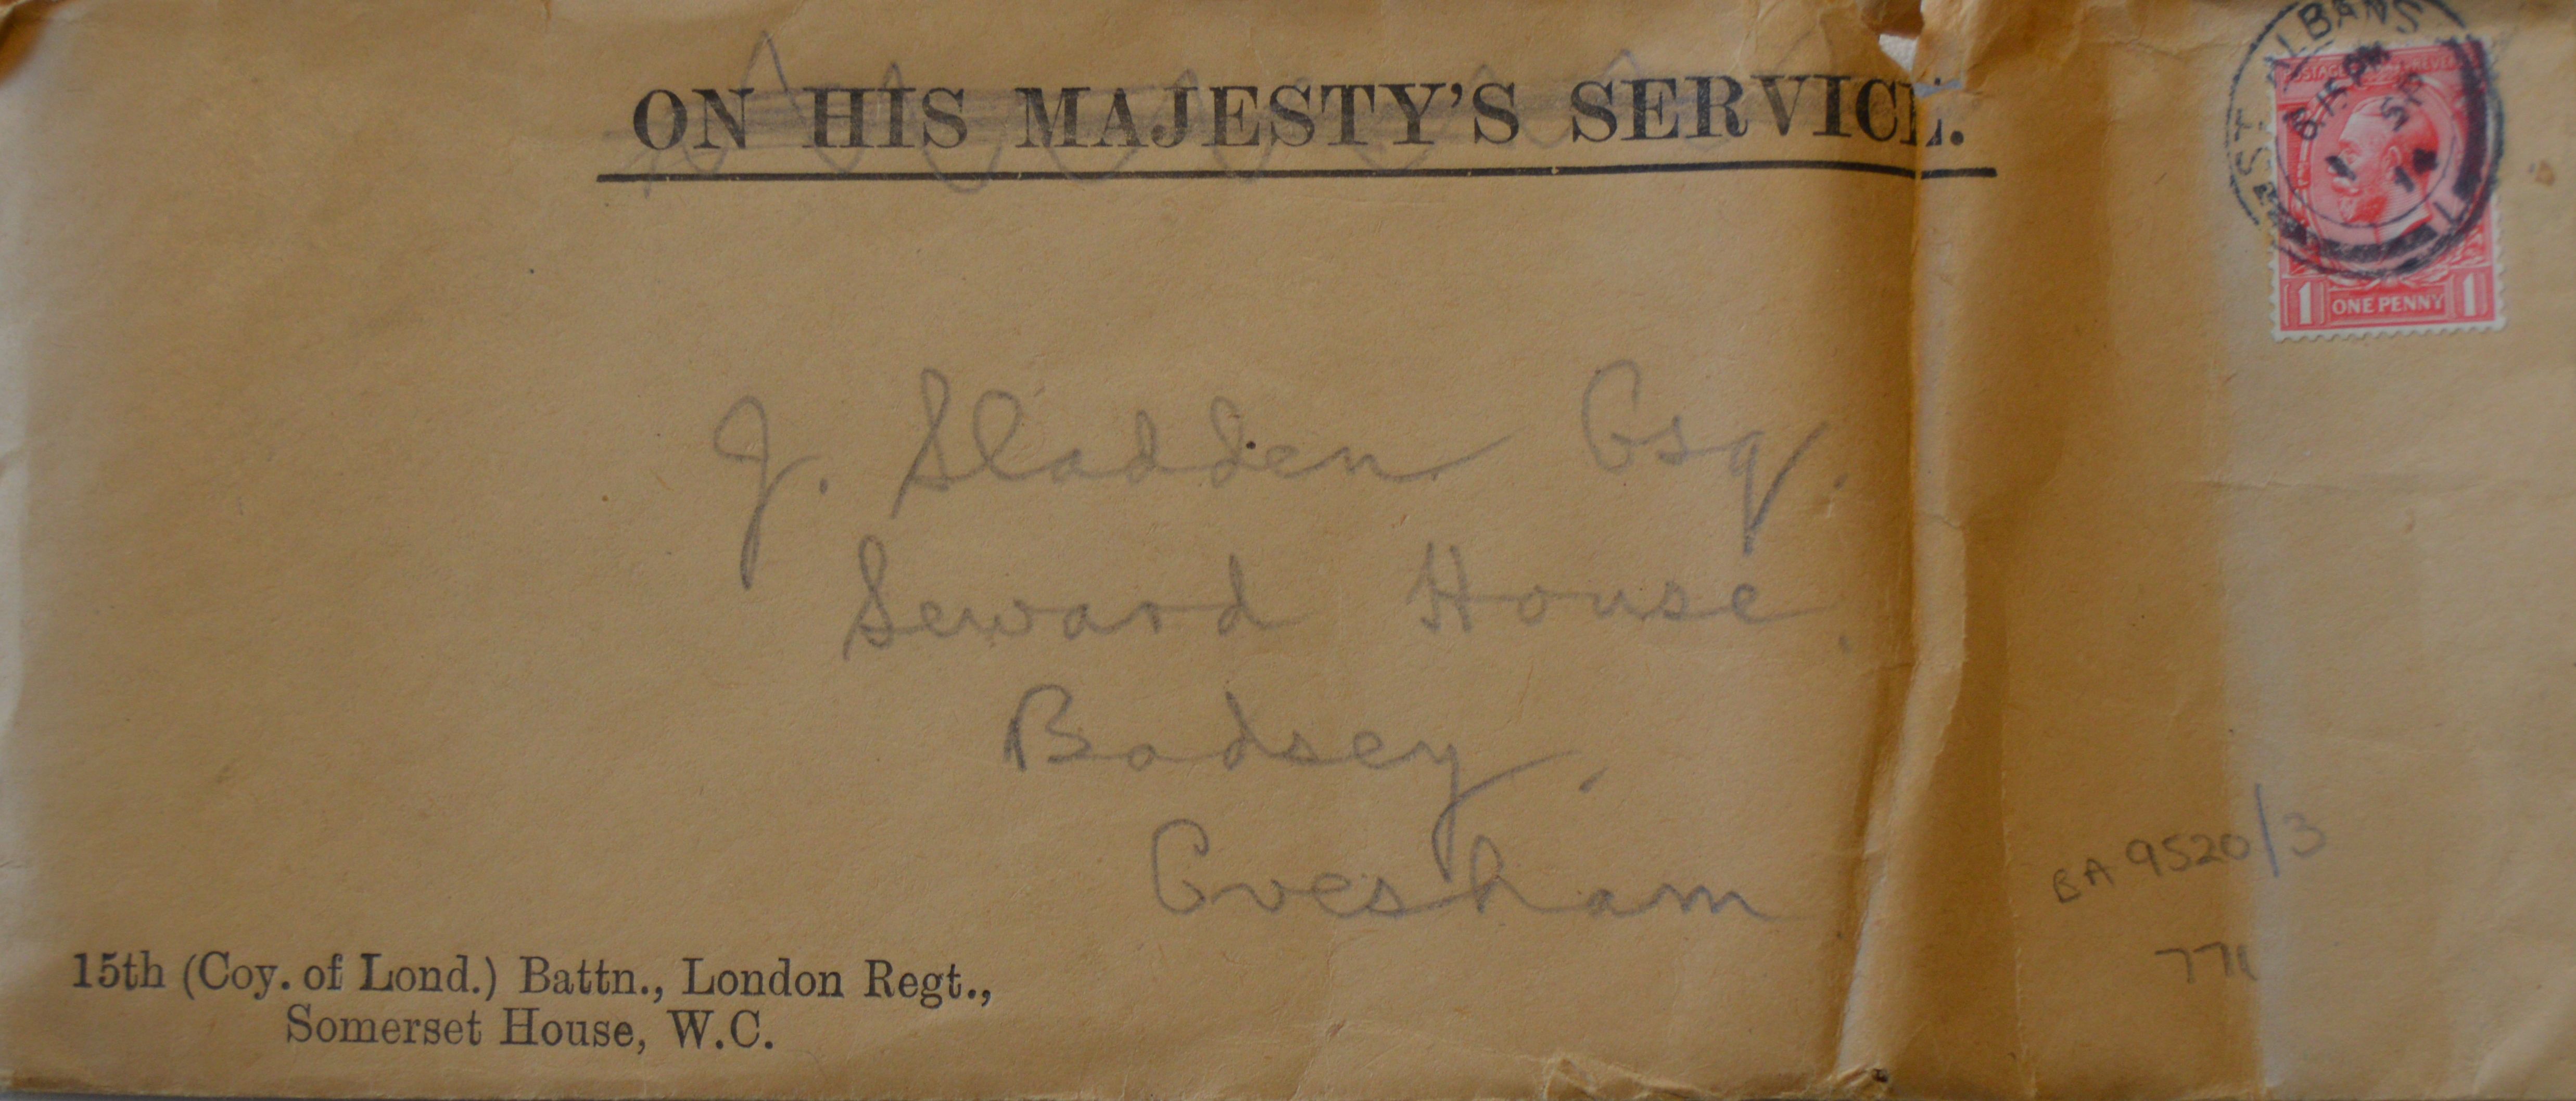 ON HIS MAJESTY'S SERVICE.
ST ALBANS
8.15 PM
1 SP
14
POSTAGE
1 ONE PENNY 1
J. Sladden Esq.
Seward House.
Badsey.
Evesham
BA 9520/3
771
15th (Coy. of Lond.) Battn., London Regt.,
Somerset House, W.C.